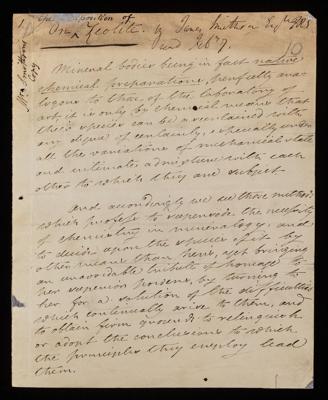 the Composition of
On ^ Zeolite. by James Smithson Esq.
read Feb. 7.
10
Mrs Smithson's
Copy
Mineral bodies being in fact native
chemical preparations, perfectly ana-
logous to those of the laboratory of
art, it is only by chemical means that
their species can be ascertained with
any degree of certainty, especially under
all the variations of mechanical state
and intimate admixture with each
other to which they are subject.
And accordingly we see those methods
which profess to supersede the necessity
of chemistry in mineralogy, and
to decide upon the species of it by
other means than hers, yet bringing
an unavoidable tribute of homage to
her superior powers, by turning to
her for a solution of the difficulties
which continually arise to them, and
to obtain firm grounds to relinquish
or adopt the conclusions to which
the principles they employ lead
them.